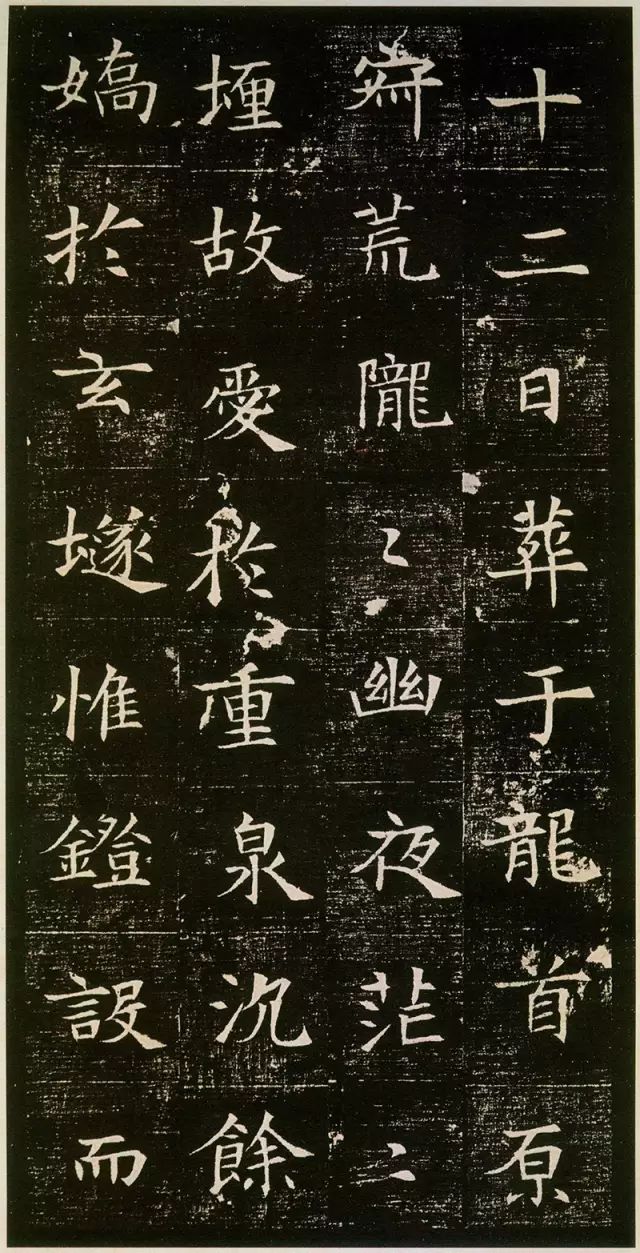 十二日葬于龍首原
荒隴〻幽夜茫〻
埋故愛於重泉沉餘
嬌於玄隧惟鐙設而